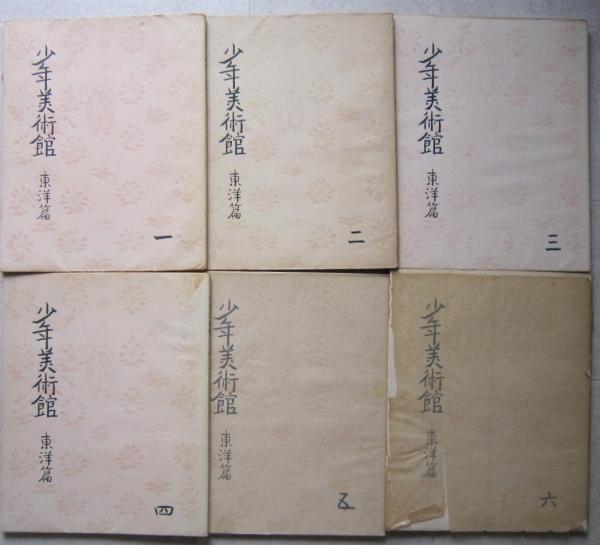 少年美術館
東洋篇
一
少年美術館
東洋篇
二
少年美術館
東洋篇
三
少年美術館
東洋篇
四
少年美術館
東洋篇
五
少年美術館
東洋篇
六